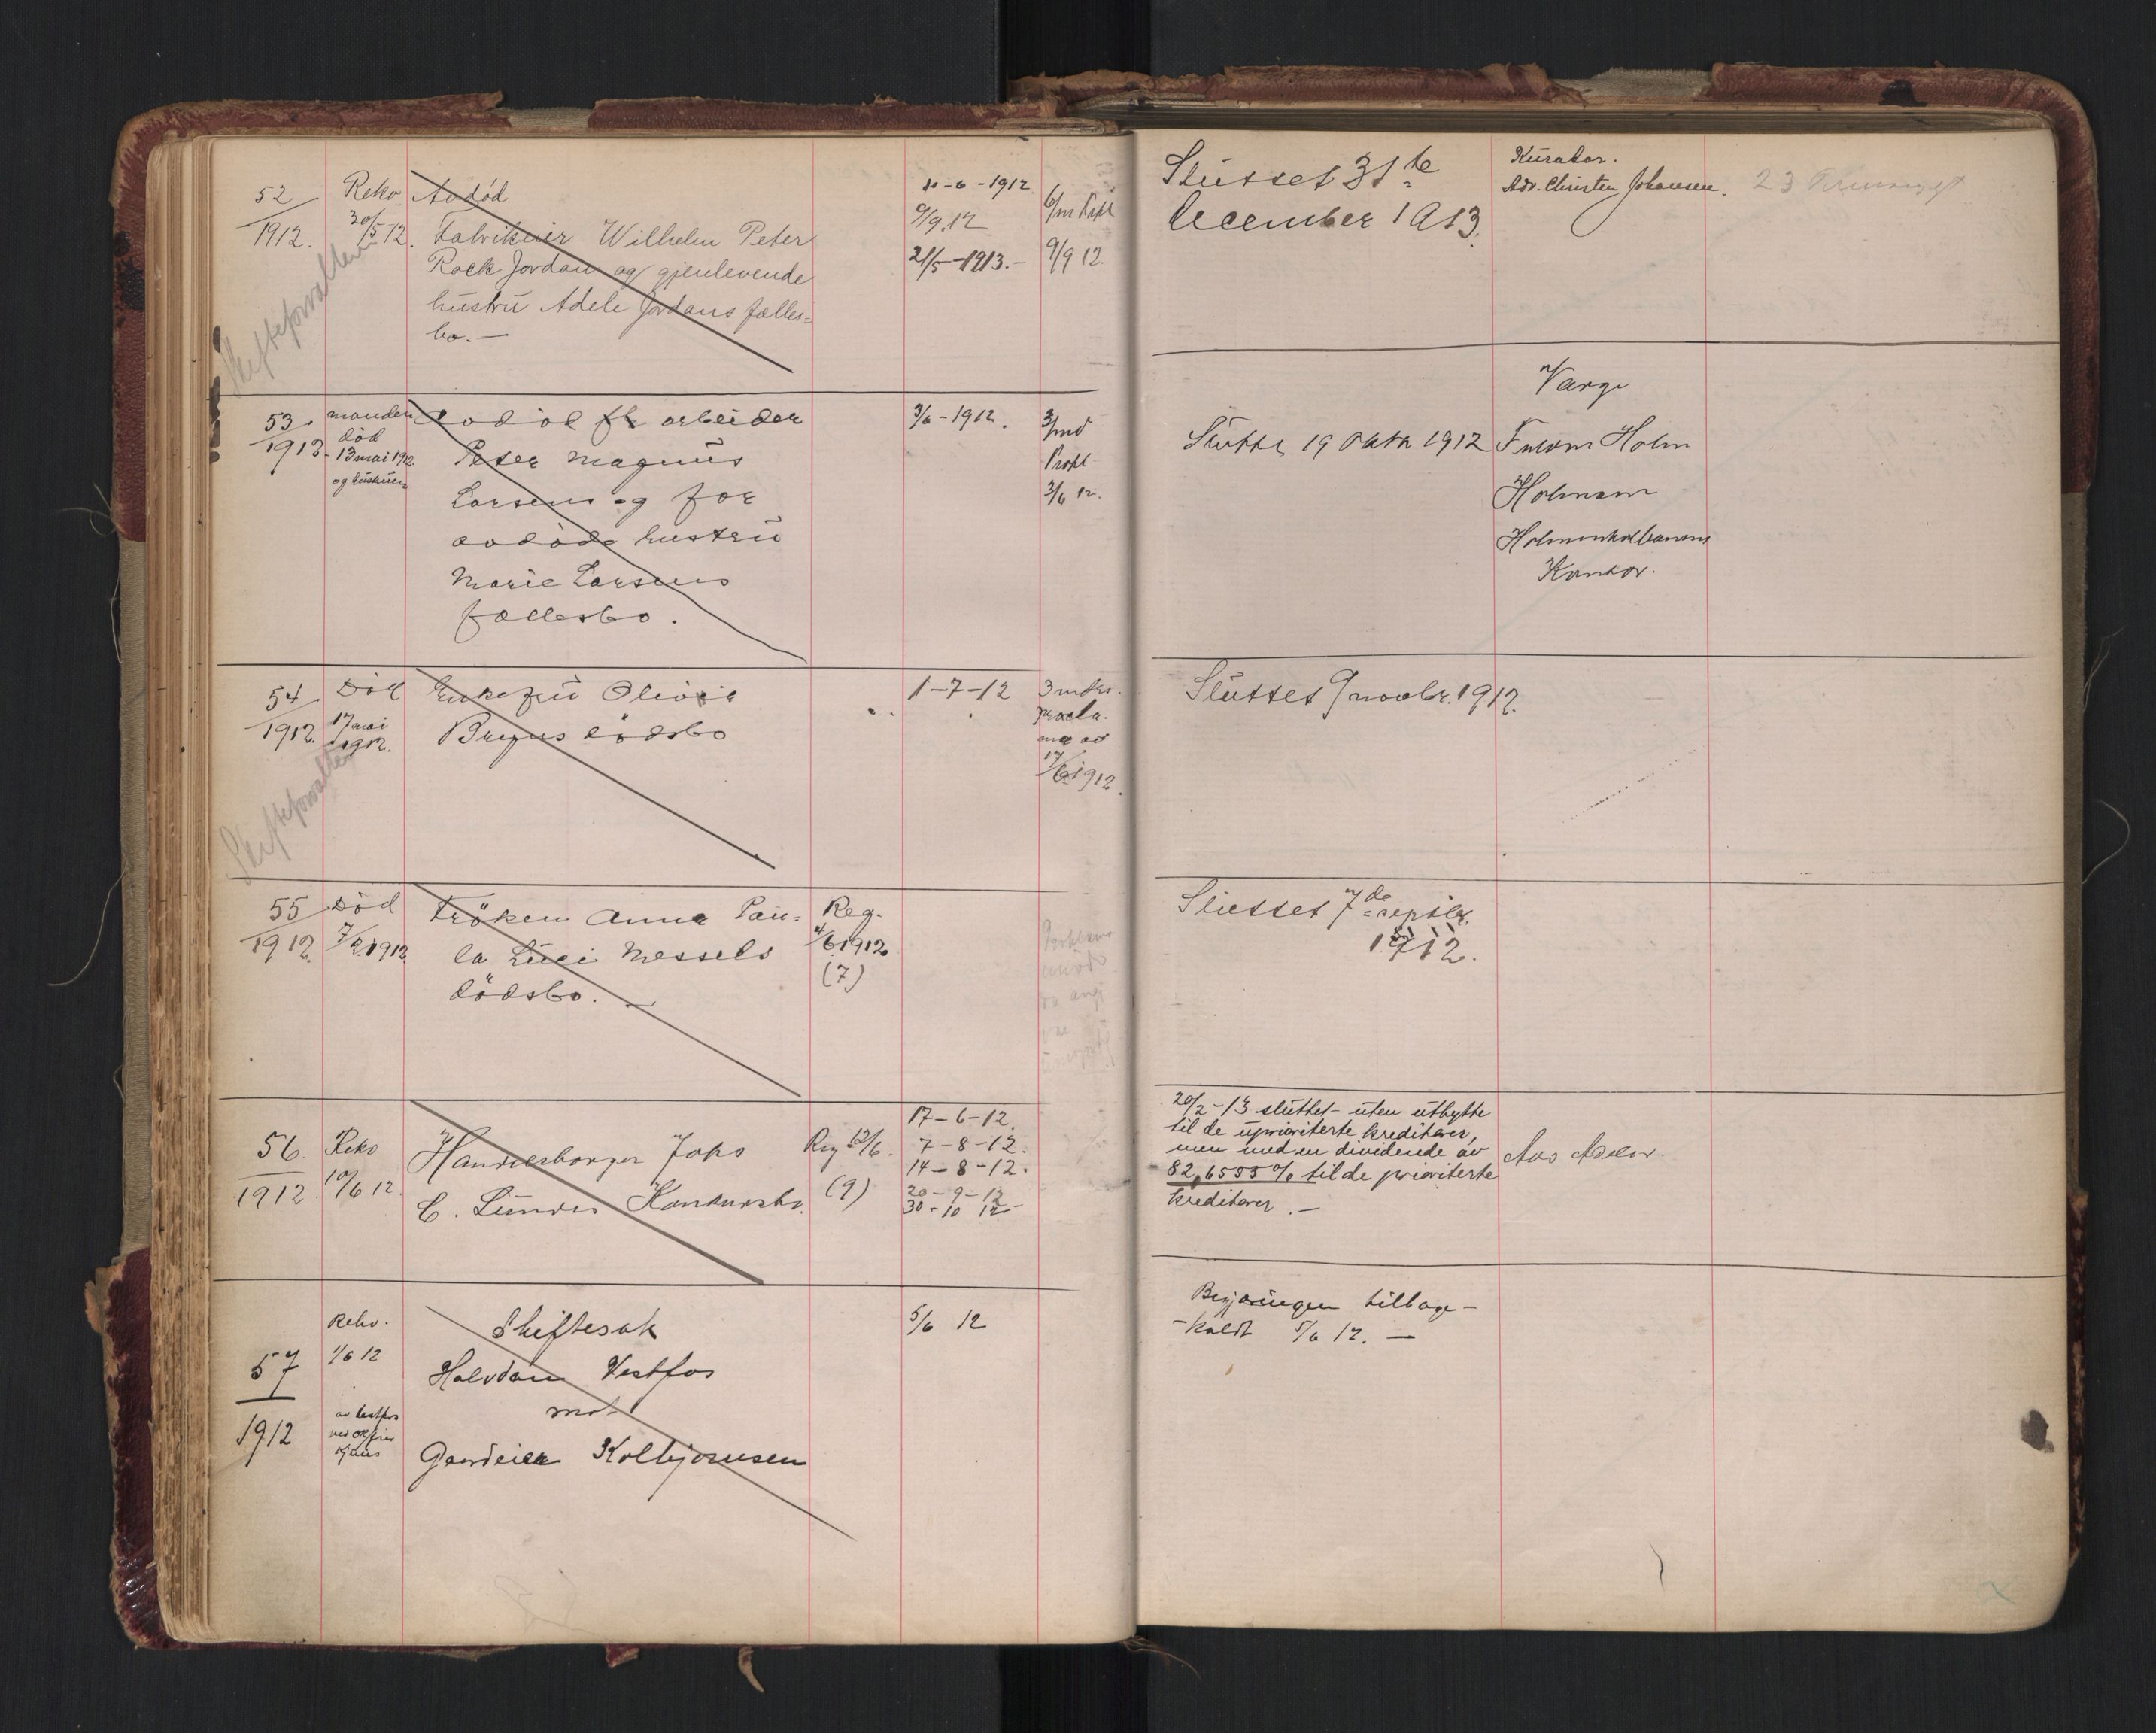 52
1912.
Reko
30/5 12.
Avdød
Fabrikeier Wilhelm Peter
Rack Jordan og gjenlevende
hustru Adele Jordans fælles=
bo. —
11-6-1912
9/9.12
21/5-1913.-
6/m Prkl
9/9 12.
Sluttet 31te
December 1913.
Kurator.
Adv. Christen Johansen.
23
Skifteforvalteren
53
1912
manden
død
13 mai 1912
og hustruen
avdøde arbeider
Peter Magnus
Larsens og før
avdøde hustru
Marie Larsens
fællesbo.
3/6-1912.
3/md
Prokl
3/6 12.
Sluttet 19 Oktbr 1912
Verge
Holm
Holmen
Holmenkolbanens
Kontor.
54
1912.
Død
17 mai
1912.
Enkefru Olivia
Bugus dødsbo
1-7-12
3 mdrs.
procla-
ma av
17/6 1912.
Sluttet 9 novbr. 1912.
Skifteforvalteren
55
1912.
Død
7/2 1912
Frøken Anna Pau-
la Luci Messels
dødsbo. —
Reg.
4/6 1912
(7)
Sluttet 7de septbr.
1912.
56.
1912
Reko
10/6 12.
Handelsborger Johs
C. Lunds Konkursbo.
Reg 12/6.
(9)
17-6-12.
7-8-12.
14-8-12.
20-9-12
30-10 12-
20/2-13 sluttet uten utbytte
til de uprioriterte kreditorer,
men med en dividende av
82,6555 % til de prioriterte
kreditorer. —
57
1912
Rekv.
1/6 12
av Vestfos
ved
Kjuus
Skiftesak
Halvdan Vestfos
mot
Gaardeier Kolbjørnsen
5/6 12
Begjæringen tilbage-
-kaldt 5/6 12. —